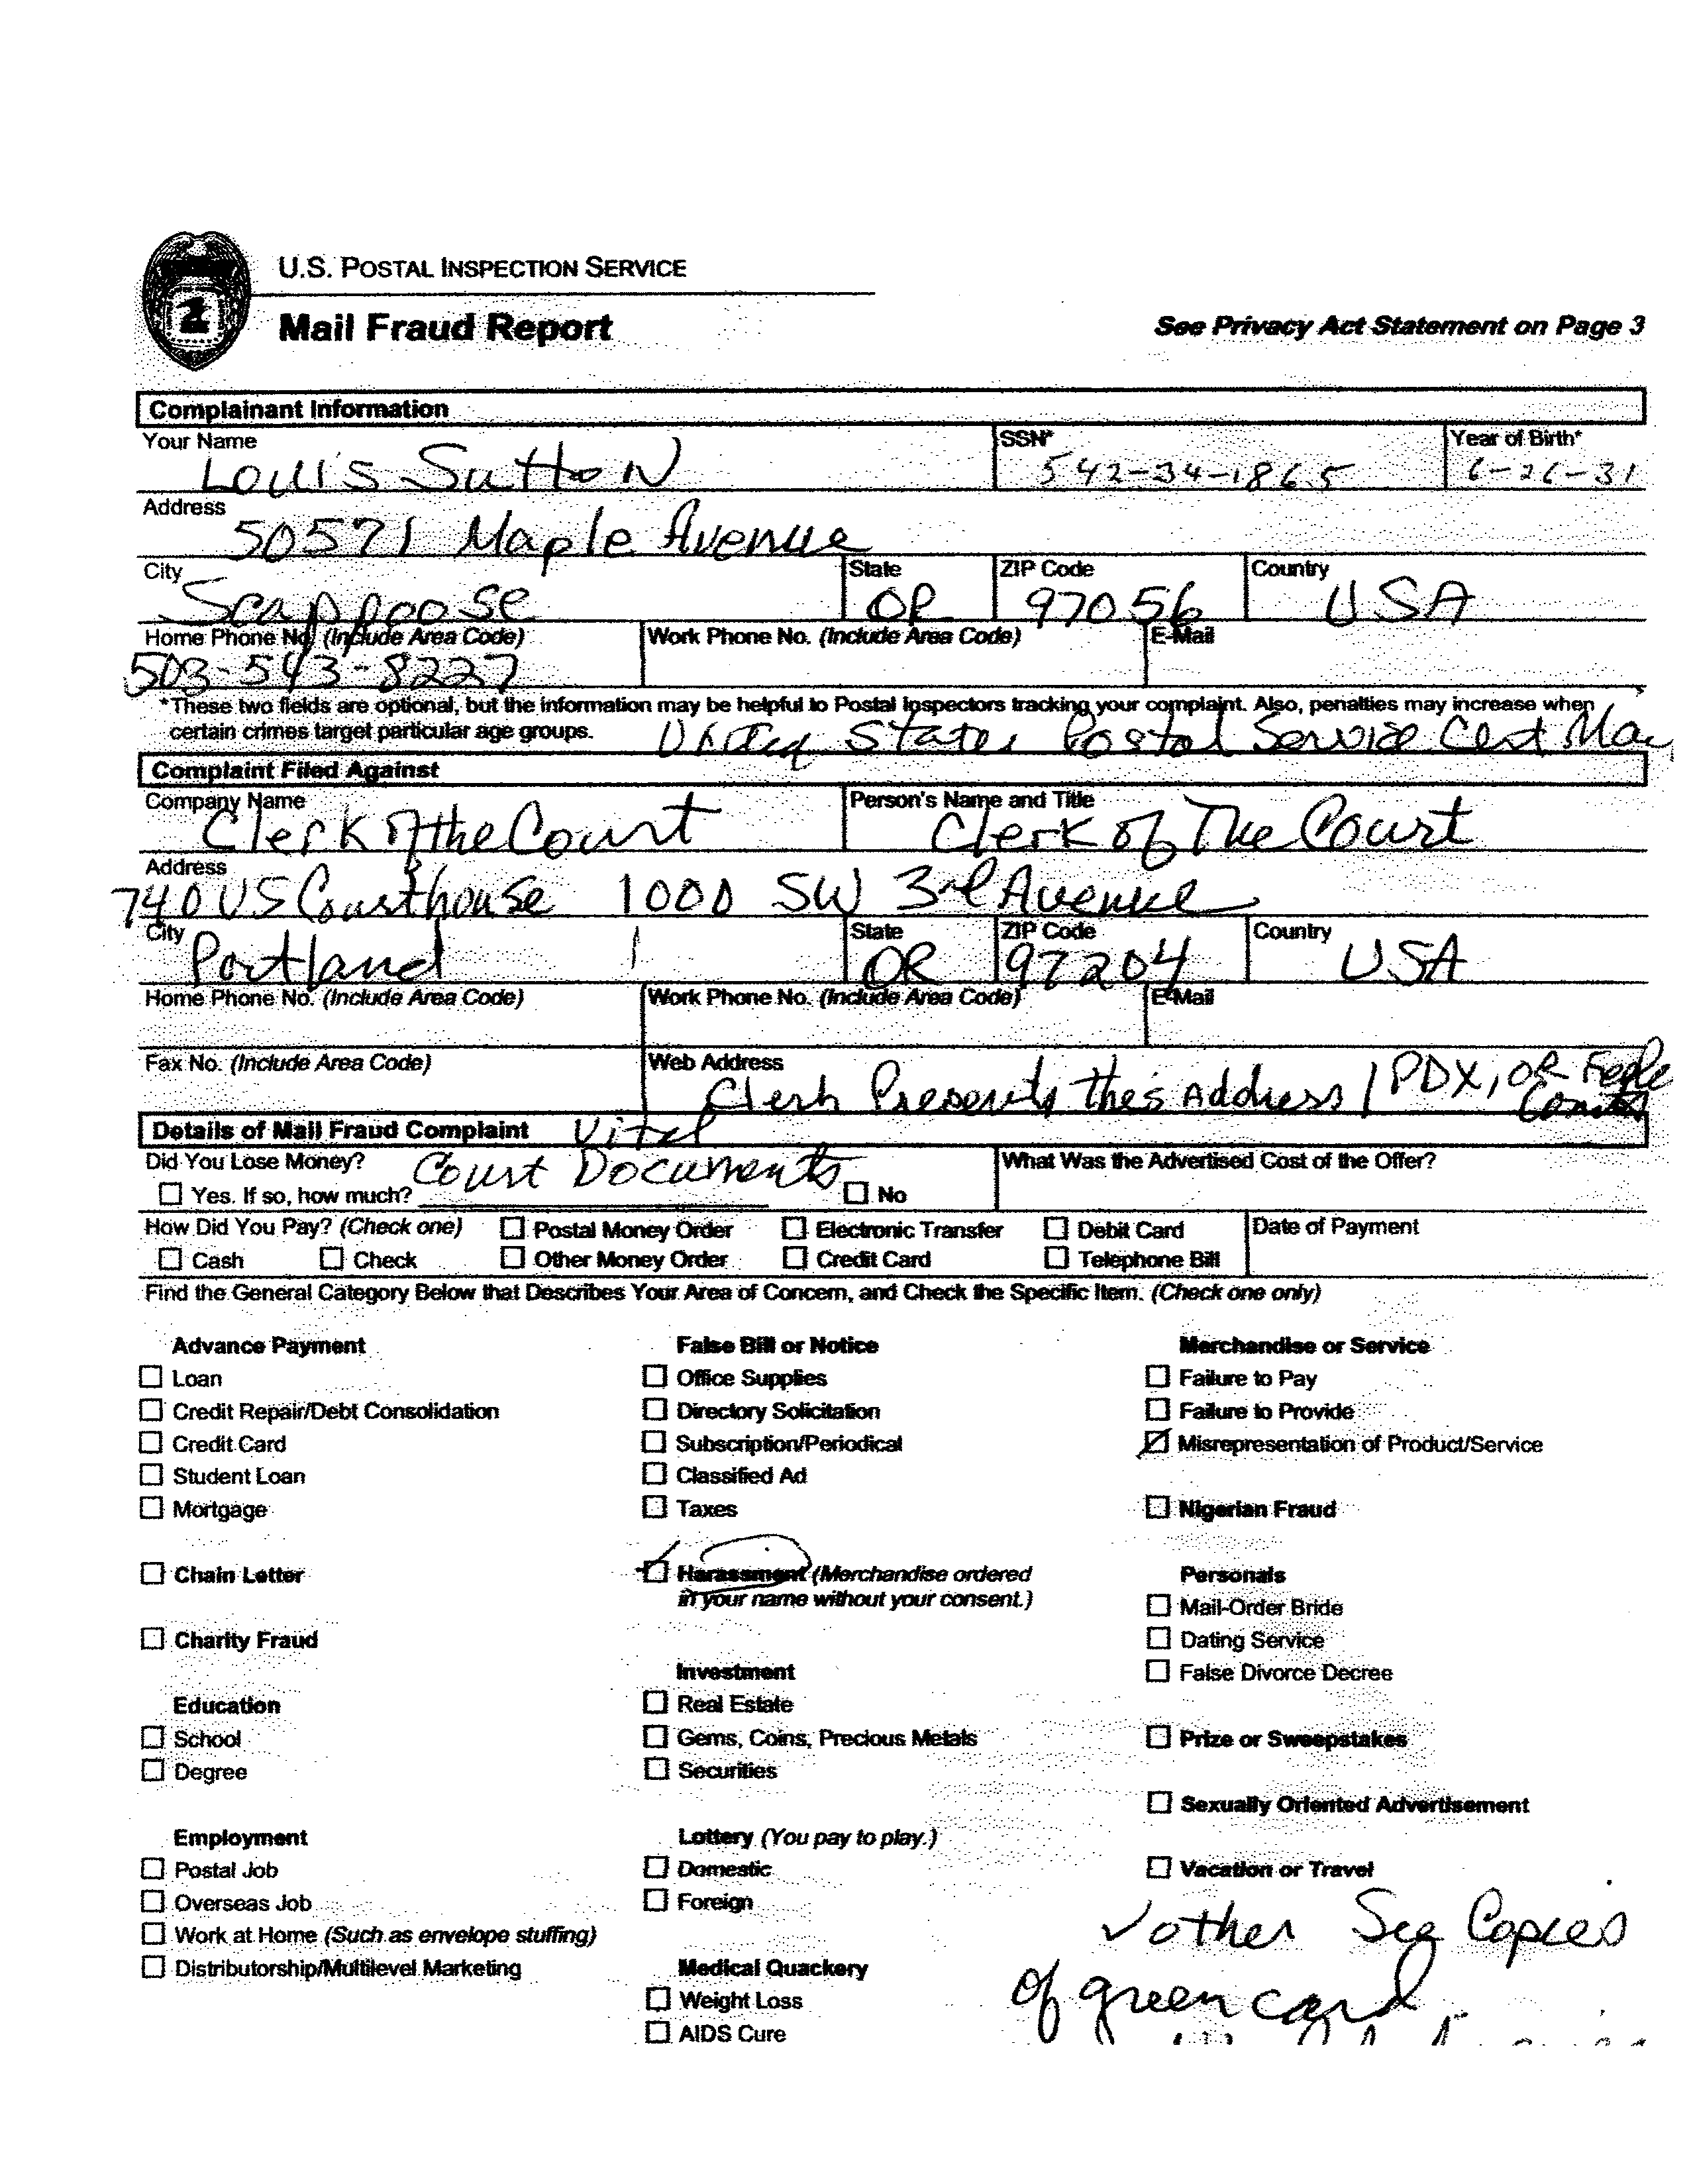 U.S. POSTAL INSPECTION SERVICE
Mail Fraud Report
See Privacy Act Statement on Page 3
Complainant Information
Your Name SSN* Year of Birth*
Louis Sutton 542-34-1865 6-26-31
Address
50571 Maple Avenue
City State ZIP Code Country
Scappoose OR 97056 USA
Home Phone No. (Include Area Code) Work Phone No. (Include Area Code) E-Mail
503-543-8227
*These two fields are optional, but the information may be helpful to Postal Inspectors tracking your complaint. Also, penalties may increase when
certain crimes target particular age groups. United States Postal Service Cert
Complaint Filed Against
Company Name Person's Name and Title
Clerk of the Court Clerk of The Court
Address
740 US Courthouse 1000 SW 3rd Avenue
City State ZIP Code Country
Portland OR 97204 USA
Home Phone No. (Include Area Code) Work Phone No. (Include Area Code) E-Mail
Fax No. (Include Area Code) Web Address
Clerk Address / PDX, OR
Details of Mail Fraud Complaint Vital
Did You Lose Money? Court Documents What Was the Advertised Cost of the Offer?
Yes. If so, how much? No
How Did You Pay? (Check one) Postal Money Order Electronic Transfer Debit Card Date of Payment
Cash Check Other Money Order Credit Card Telephone Bill
Find the General Category Below that Describes Your Area of Concern, and Check the Specific Item. (Check one only)
Advance Payment
Loan
Credit Repair/Debt Consolidation
Credit Card
Student Loan
Mortgage
Chain Letter
Charity Fraud
Education
School
Degree
Employment
Postal Job
Overseas Job
Work at Home (Such as envelope stuffing)
Distributorship/Multilevel Marketing
False Bill or Notice
Office Supplies
Directory Solicitation
Subscription/Periodical
Classified Ad
Taxes
Harassment (Merchandise ordered
in your name without your consent.)
Investment
Real Estate
Gems, Coins, Precious Metals
Securities
Lottery (You pay to play.)
Domestic
Foreign
Medical Quackery
Weight Loss
AIDS Cure
Merchandise or Service
Failure to Pay
Failure to Provide
Misrepresentation of Product/Service
Nigerian Fraud
Personals
Mail-Order Bride
Dating Service
False Divorce Decree
Prize or Sweepstakes
Sexually Oriented Advertisement
Vacation or Travel
✓other See Copies
of green card